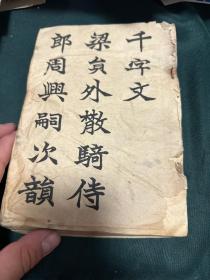 千字文
梁負外散騎侍
郎周興嗣次韻